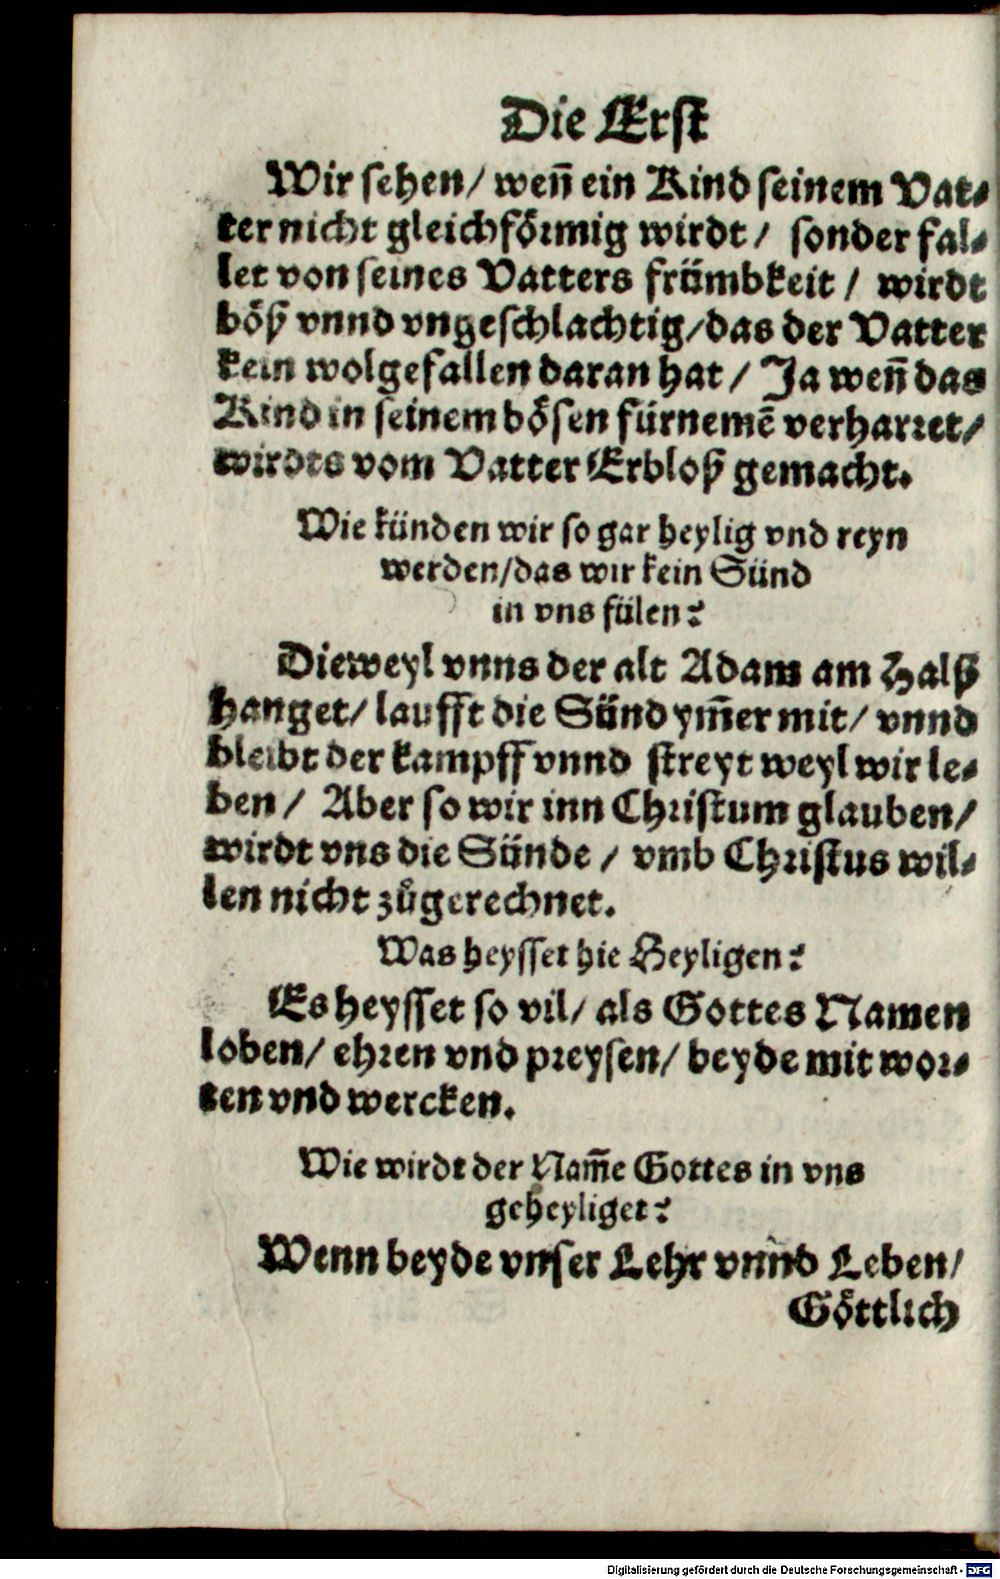 Die Erſt
Wir ſehen/ weñ ein Kind ſeinem Vat⸗
ter nicht gleichfoͤꝛmig wirdt/ ſonder fal⸗
let von ſeines Vatters fruͤmbkeit/ wirdt
boͤß vnnd vngeſchlachtig/das der Vatter
kein wolgefallen daran hat/ Ja weñ das
Kind in ſeinem boͤſen fuͤrnemẽ verharꝛet/
wirdts vom Vatter Erbloß gemacht.
Wie kuͤnden wir ſo gar heylig vnd reyn
werden/das wir kein Suͤnd
in vns fuͤlen?
Dieweyl vnns der alt Adam am Halß
hanget/ laufft die Suͤnd ym̃er mit/ vnnd
bleibt der kampff vnnd ſtreyt weyl wir le⸗
ben/ Aber ſo wir inn Chꝛiſtum glauben/
wirdt vns die Suͤnde/ vmb Chꝛiſtus wil⸗
len nicht zůgerechnet.
Was heyſſet hie Heyligen?
Es heyſſet ſo vil/ als Gottes Namen
loben/ ehꝛen vnd pꝛeyſen/ beyde mit woꝛ⸗
ten vnd wercken.
Wie wirdt der Nam̃e Gottes in vns
geheyliget?
Wenn beyde vnſer Lehr vnnd Leben/
Goͤttlich
Digitalisierung gefördert durch die Deutsche Forschungsgemeinschaft - DFG